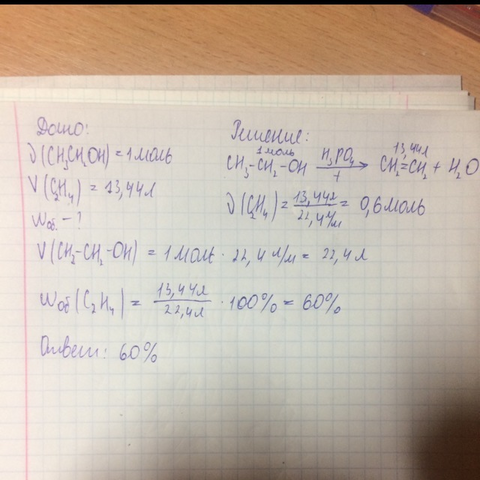 Дано:
ν(CH₃CH₂OH) = 1 моль
V(C₂H₄) = 13,44л
Wоб. - ?
Решение:
1 моль 13,44л
CH₃-CH₂-OH H₃PO₄ t → CH₂=CH₂ + H₂O
ν(C₂H₄) = 13,44л / 22,4 л/м = 0,6 моль
V(CH₂-CH₂-OH) = 1 моль · 22,4 л/м = 22,4 л
Wоб(C₂H₄) = 13,44л / 22,4л · 100% = 60%
Ответ: 60%